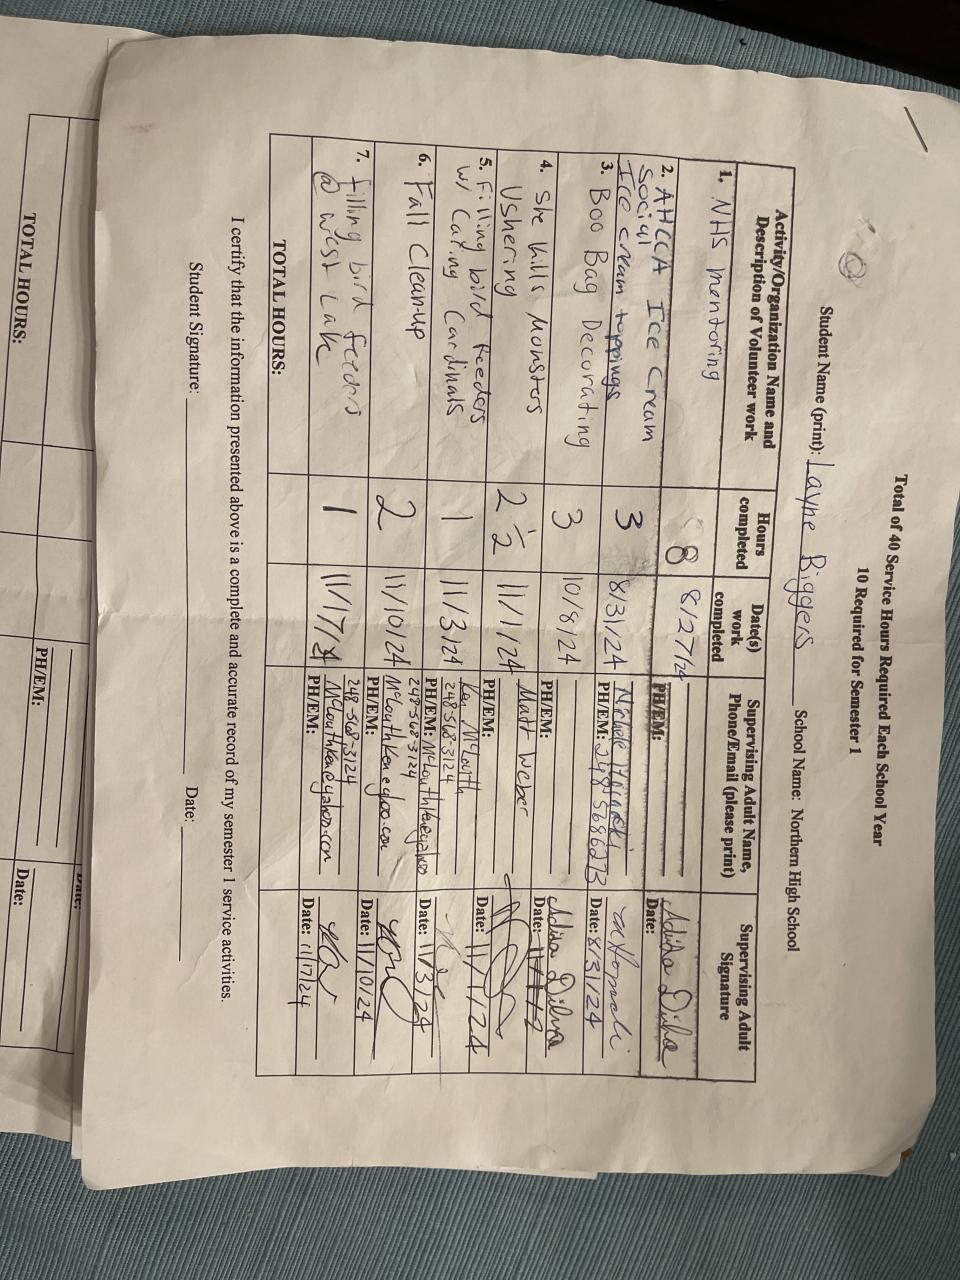 Total of 40 Service Hours Required Each School Year
10 Required for Semester 1
Student Name (print): Layne Biggers School Name: Northern High School
Activity/Organization Name and Description of Volunteer work
Hours completed
Date(s) work completed
Supervising Adult Name, Phone/Email (please print)
Supervising Adult Signature
1. NHS mentoring
8
8/27/24
PH/EM:
Date:
2. AHCCA Ice Cream
Social
Ice cream toppings
3
8/31/24
PH/EM: 248 5686273
Date: 8/31/24
3. Boo Bag Decorating
3
10/8/24
PH/EM:
Date:
4. She Kills Monsters
Ushering
2 1/2
11/1/24
Matt Weber
PH/EM:
Date: 11/1/24
5. Filling bird feeders
w/ Caring Cardinals
1
11/3/24
Ken McLouth
248-568-3124
PH/EM: McLouthken@yahoo
Date: 11/3/24
6. Fall Clean-up
2
11/10/24
248-568-3124
PH/EM:
Date: 11/10/24
7. filling bird feeders
@ West Lake
1
11/17/24
248-568-3124
McLouthken@yahoo.com
PH/EM:
Date:
TOTAL HOURS:
I certify that the information presented above is a complete and accurate record of my semester 1 service activities.
Student Signature: Date:
Date:
PH/EM:
Date:
TOTAL HOURS: